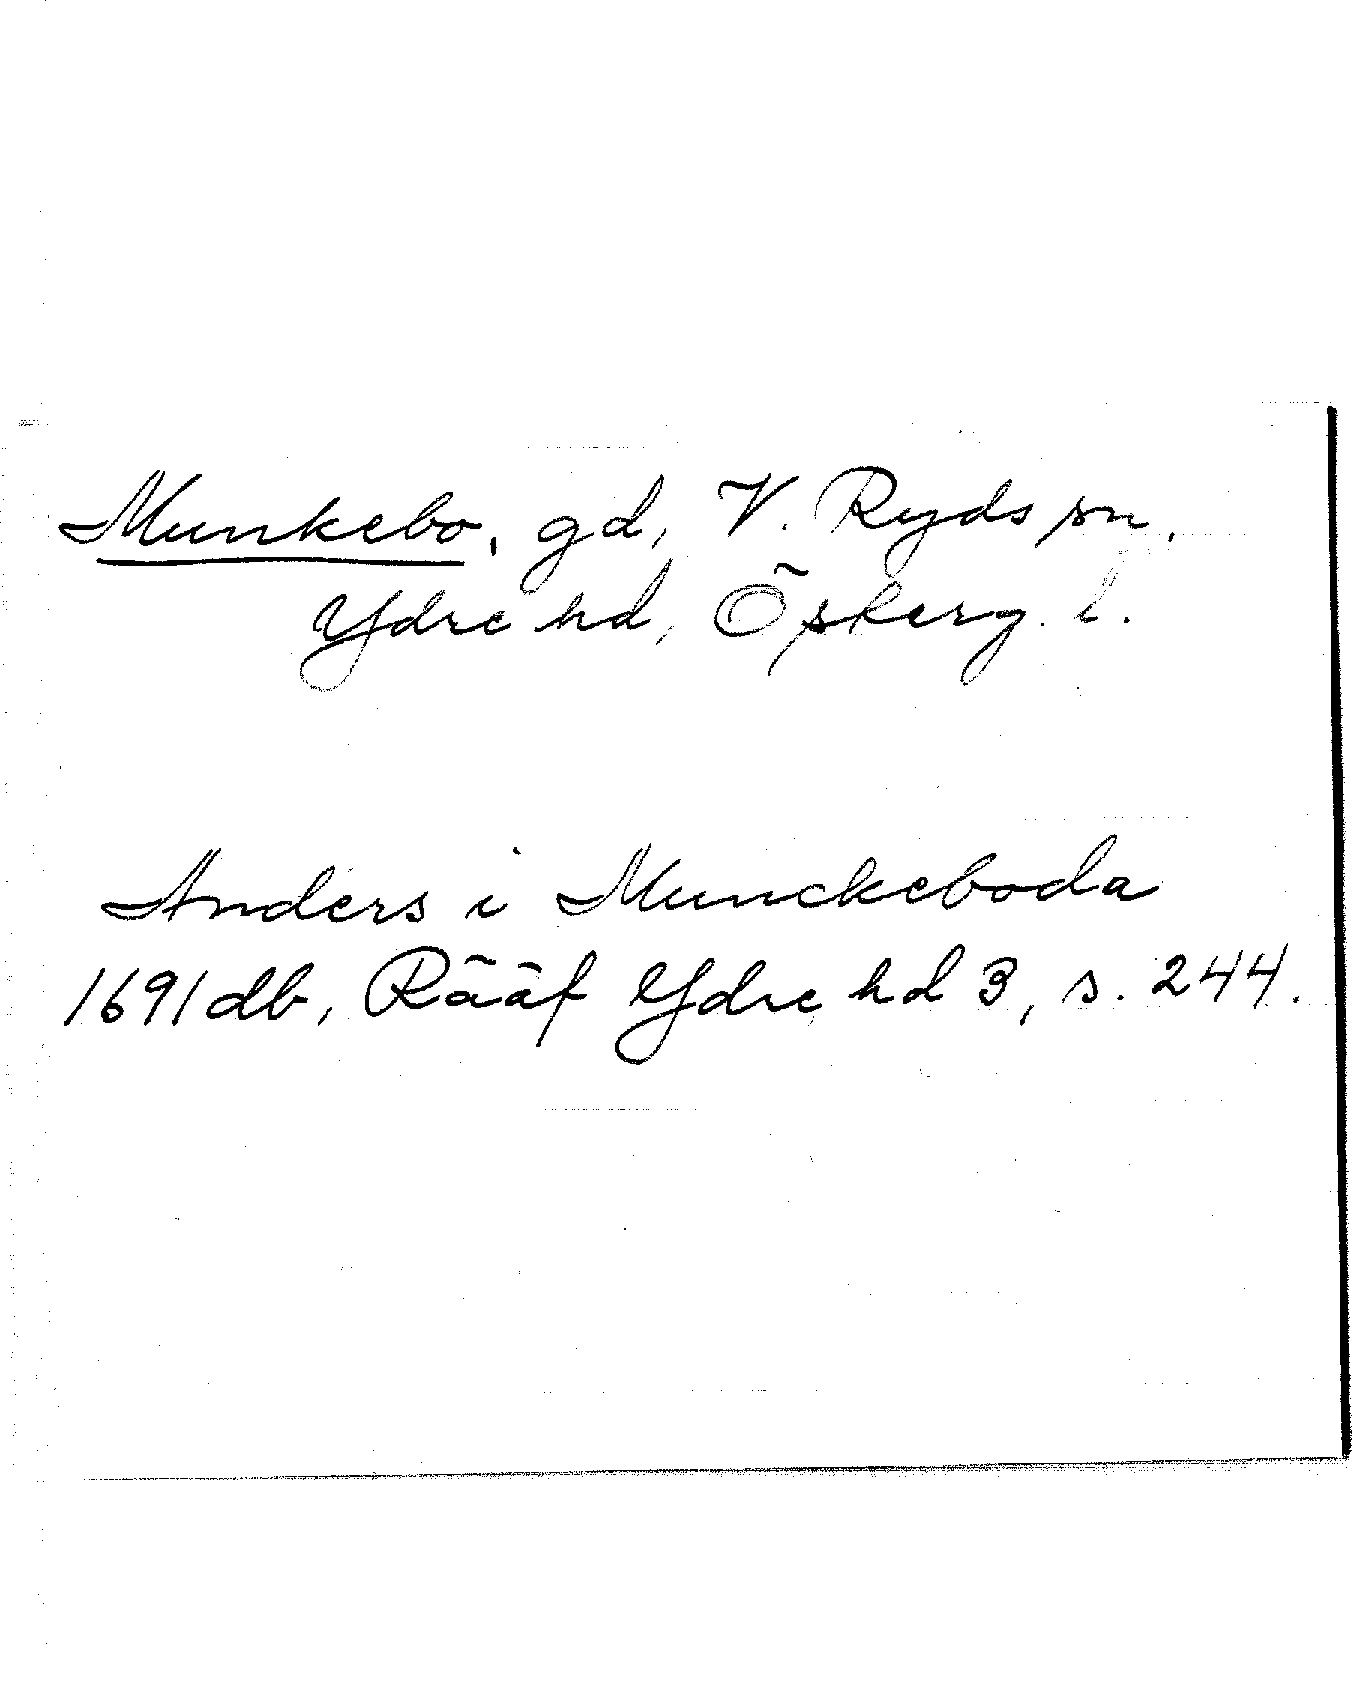 Munkebo, gd, V. Ryds sn.
Ydre hd, Östergl.
Anders i Munckeboda
1691 db, Rääf Ydre hd 3, s. 244.